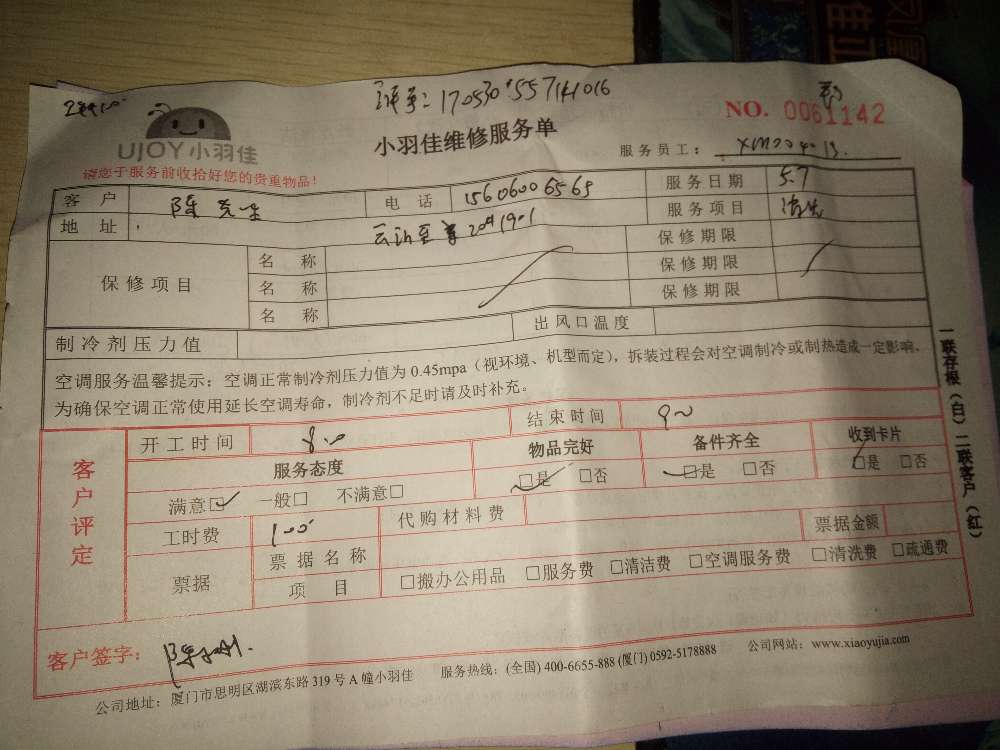 NO. 0061142
UJOY小羽佳
小羽佳维修服务单
服务员工：
请您于服务前收拾好您的贵重物品！
客 户 陈先生 电 话 15606006565 服务日期 5.7
地 址 服务项目
保修项目 名 称 保修期限
名 称 保修期限
名 称 保修期限
制冷剂压力值 出风口温度
空调服务温馨提示：空调正常制冷剂压力值为0.45mpa（视环境、机型而定），拆装过程会对空调制冷或制热造成一定影响，
为确保空调正常使用延长空调寿命，制冷剂不足时请及时补充。
客户评定
开工时间 8:00 结束时间 9:00
服务态度 物品完好 备件齐全 收到卡片
满意□ 一般□ 不满意□ □是 □否 □是 □否 □是 □否
工时费 100 代购材料费
票据 票据名称 票据金额
项 目 □搬办公用品 □服务费 □清洁费 □空调服务费 □清洗费 □疏通费
客户签字：
公司地址：厦门市思明区湖滨东路319号A幢小羽佳 服务热线：(全国) 400-6655-888 (厦门) 0592-5178888 公司网站：www.xiaoyujia.com
一联存根（白）二联客户（红）